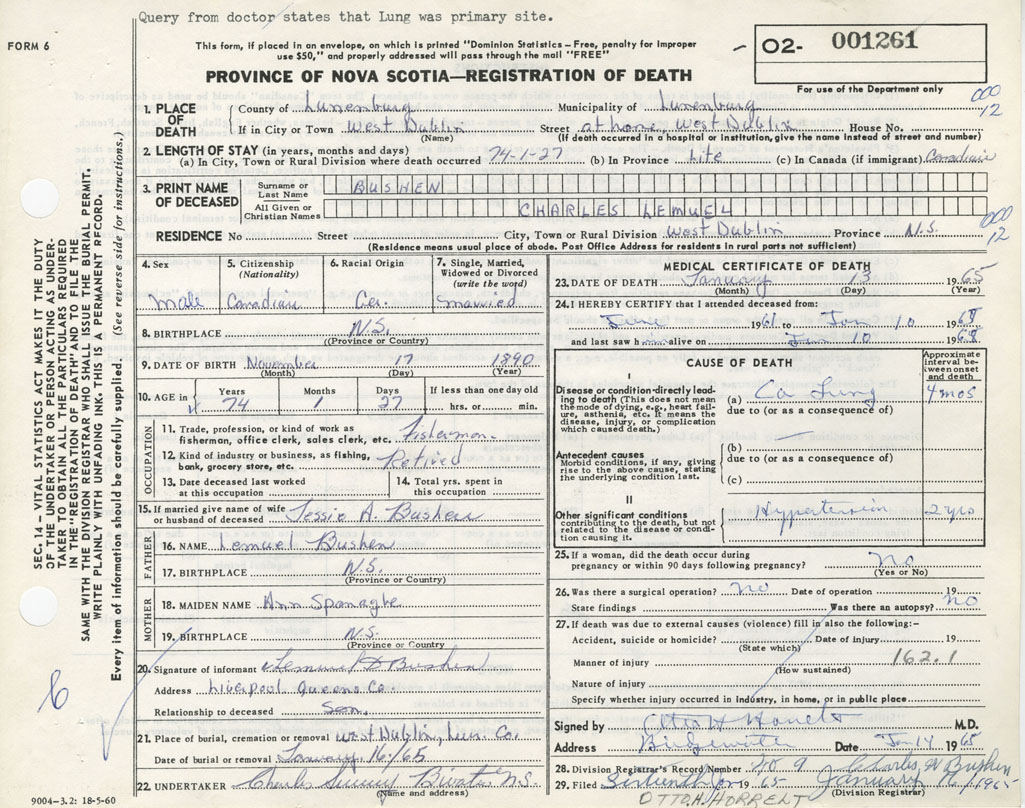 Query from doctor states that Lung was primary site.
FORM 6
This form, if placed in an envelope, on which is printed "Dominion Statistics – Free, penalty for improper
use $50," and properly addressed will pass through the mail "FREE"
O2- 001261
For use of the Department only
PROVINCE OF NOVA SCOTIA—REGISTRATION OF DEATH
000
12
1. PLACE OF DEATH
County of Lunenburg Municipality of Lunenburg
If in City or Town West Dublin Street at home, West Dublin House No.
(Name) (If death occurred in a hospital or institution, give the name instead of street and number)
2. LENGTH OF STAY (in years, months and days)
(a) In City, Town or Rural Division where death occurred 74-1-27 (b) In Province Life (c) In Canada (if immigrant) Canadian
3. PRINT NAME OF DECEASED
Surname or Last Name BUSHEN
All Given or Christian Names CHARLES LEMUEL
RESIDENCE No Street City, Town or Rural Division West Dublin Province N.S.
000
12
(Residence means usual place of abode. Post Office Address for residents in rural parts not sufficient)
4. Sex
Male
5. Citizenship (Nationality)
Canadian
6. Racial Origin
7. Single, Married, Widowed or Divorced (write the word)
Married
8. BIRTHPLACE N.S.
(Province or Country)
9. DATE OF BIRTH November 17 1890
(Month) (Day) (Year)
10. AGE in Years 74 Months 1 Days 27 If less than one day old hrs. or min.
OCCUPATION
11. Trade, profession, or kind of work as fisherman, office clerk, sales clerk, etc. Fisherman.
12. Kind of industry or business, as fishing, bank, grocery store, etc. Retired
13. Date deceased last worked at this occupation
14. Total yrs. spent in this occupation
15. If married give name of wife or husband of deceased Jessie A. Bushen
FATHER
16. NAME Lemuel Bushen
17. BIRTHPLACE N.S.
(Province or Country)
MOTHER
18. MAIDEN NAME Ann Spanagle
19. BIRTHPLACE N.S.
(Province or Country
20. Signature of informant Lemuel Bushen
Address Liverpool Queens Co.
Relationship to deceased Son.
21. Place of burial, cremation or removal West Dublin, Lun. Co.
Date of burial or removal January 16/65
22. UNDERTAKER Charles N.S.
(Name and address)
9004-3.2: 18-5-60
MEDICAL CERTIFICATE OF DEATH
23. DATE OF DEATH January 13 1965
(Month) (Day) (Year)
24. I HEREBY CERTIFY that I attended deceased from:
June 1961 to Jan 10 19
and last saw h alive on Jan 10 19
CAUSE OF DEATH
Approximate interval between onset and death
I
Disease or condition directly leading to death (This does not mean the mode of dying, e.g., heart failure, asthenia, etc. It means the disease, injury, or complication which caused death.)
(a) Ca Lung 4 mos
due to (or as a consequence of)
Antecedent causes
Morbid conditions, if any, giving rise to the above cause, stating the underlying condition last.
(b)
due to (or as a consequence of)
(c)
II
Other significant conditions
contributing to the death, but not related to the disease or condition causing it.
Hypertension 2 yrs
25. If a woman, did the death occur during pregnancy or within 90 days following pregnancy? No
(Yes or No)
26. Was there a surgical operation? No Date of operation 19
State findings Was there an autopsy? No
27. If death was due to external causes (violence) fill in also the following:–
Accident, suicide or homicide? Date of injury 19
(State which)
Manner of injury 162.1
(How sustained)
Nature of injury
Specify whether injury occurred in industry, in home, or in public place
Signed by Otto H M.D.
Address Bridgewater Date Jan 14 1965
28. Division Registrar's Record Number No 9 Charles W Bushen
29. Filed 1965 January
(Division Registrar)
OTTO.H.HORRELT
SEC. 14 – VITAL STATISTICS ACT MAKES IT THE DUTY
OF THE UNDERTAKER OR PERSON ACTING AS UNDER-
TAKER TO OBTAIN ALL THE PARTICULARS REQUIRED
IN THE "REGISTRATION OF DEATH" AND TO FILE THE
SAME WITH THE DIVISION REGISTRAR WHO SHALL ISSUE THE BURIAL PERMIT.
WRITE PLAINLY WITH UNFADING INK. THIS IS A PERMANENT RECORD.
Every item of information should be carefully supplied. (See reverse side for instructions.)